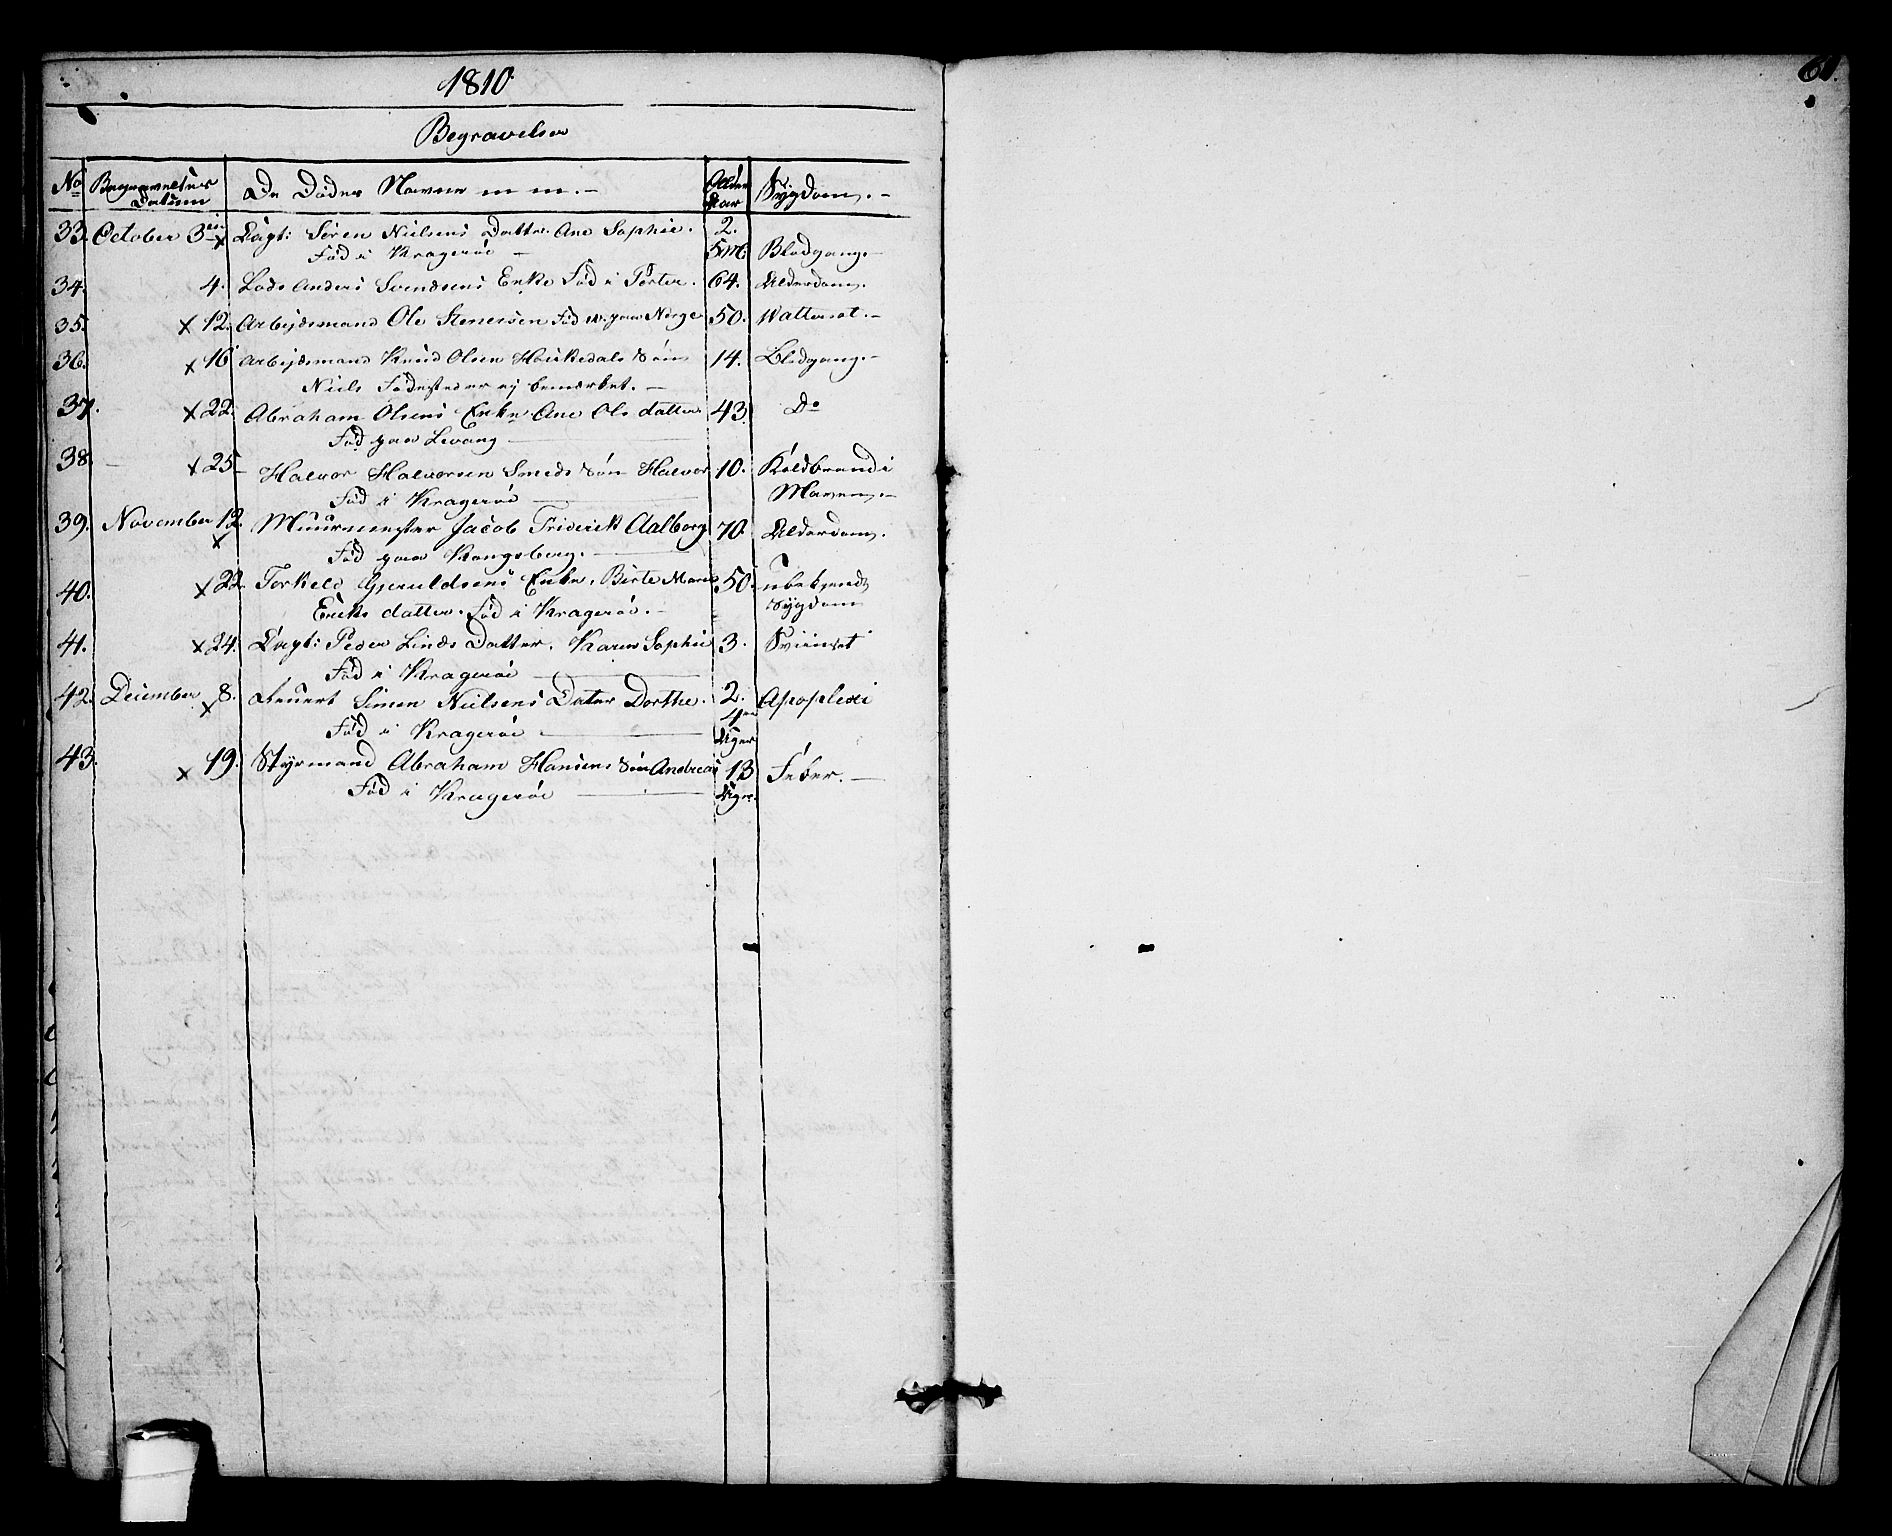 1810.
61.
Begravelser
No Begravelses Datum De Dødes Navne m m. - Alder Aar Sygdom. -
33. October 3die x Lagt: Søren Nielsens Datter Ane Sophie. 2.
Fød i Kragerøe - 5 M: Blodgang. -
34. 4. Lods Anders Svendsens Enke Fød i Porter. 64. Alderdom.
35. x 12. Arbejdsmand Ole Stenersen Fød paa Norge 50. Wattersot. -
36. x 16 Arbejdsmand Knud Olsen Haukedals Søn 14. Blodgang. -
Niels Fødesteder ej bemærket. -
37. x 22. Abraham Olsens Enke Ane Ols datter 43 Do
Fød paa Levang
38. - x 25 - Halvor Halvorsen Smeds Søn Halvor 10. Koldbrand i
Fød i Kragerøe Maven. -
39. November 12. Muurmester Jacob Friderick Aalborg 70. Alderdom.
x Fød paa Kongsberg.
40. x 22 Torkeld Gjeruldsens Enke, Birte Marie 50. ubekjendt
Eriks datter. Fød i Kragerøe. - Sygdom
41. x 24. Lagt: Peder Linds Datter. Karen Sophie 3. Sviinset
Fød i Kragerøe
42. December 8. Simen Nielsens Dater Dorthe. 2. Apoplexi
x Fød i Kragerøe 4re Uger
43. x 19. Styrmand Abraham Hansens Søn Andreas 13 Feber. -
Fød i Kragerøe Uger.